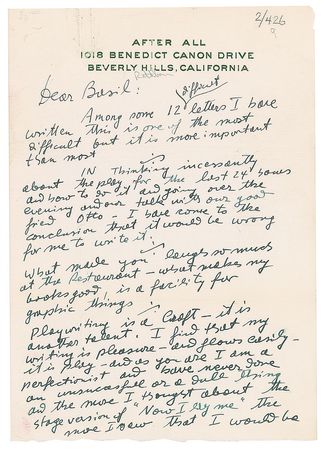 2/426
AFTER ALL
1018 BENEDICT CANON DRIVE
BEVERLY HILLS, CALIFORNIA
Dear Basil:
Among some 12 difficult letters I have
written this is one of the most
difficult but it is more important
than most
IN Thinking incessantly
about the play for the last 24 hours
and how to do it and going over the
evening and our talk with our good
fried Otto - I have come to the
conclusion that it would be wrong
for me to write it.
What made you laugh so much
at the Restaurant - what makes my
books good is a facility for
graphic things
Playwriting is a Craft - it is
another talent. I find that my
writing is pleasure - and flows easily -
it is play - and as you are I am a
perfectionist and have never done
an unsuccesful or a dull thing
and the more I thought about the
stage version of "Now I lay me" the
more I saw that I would be